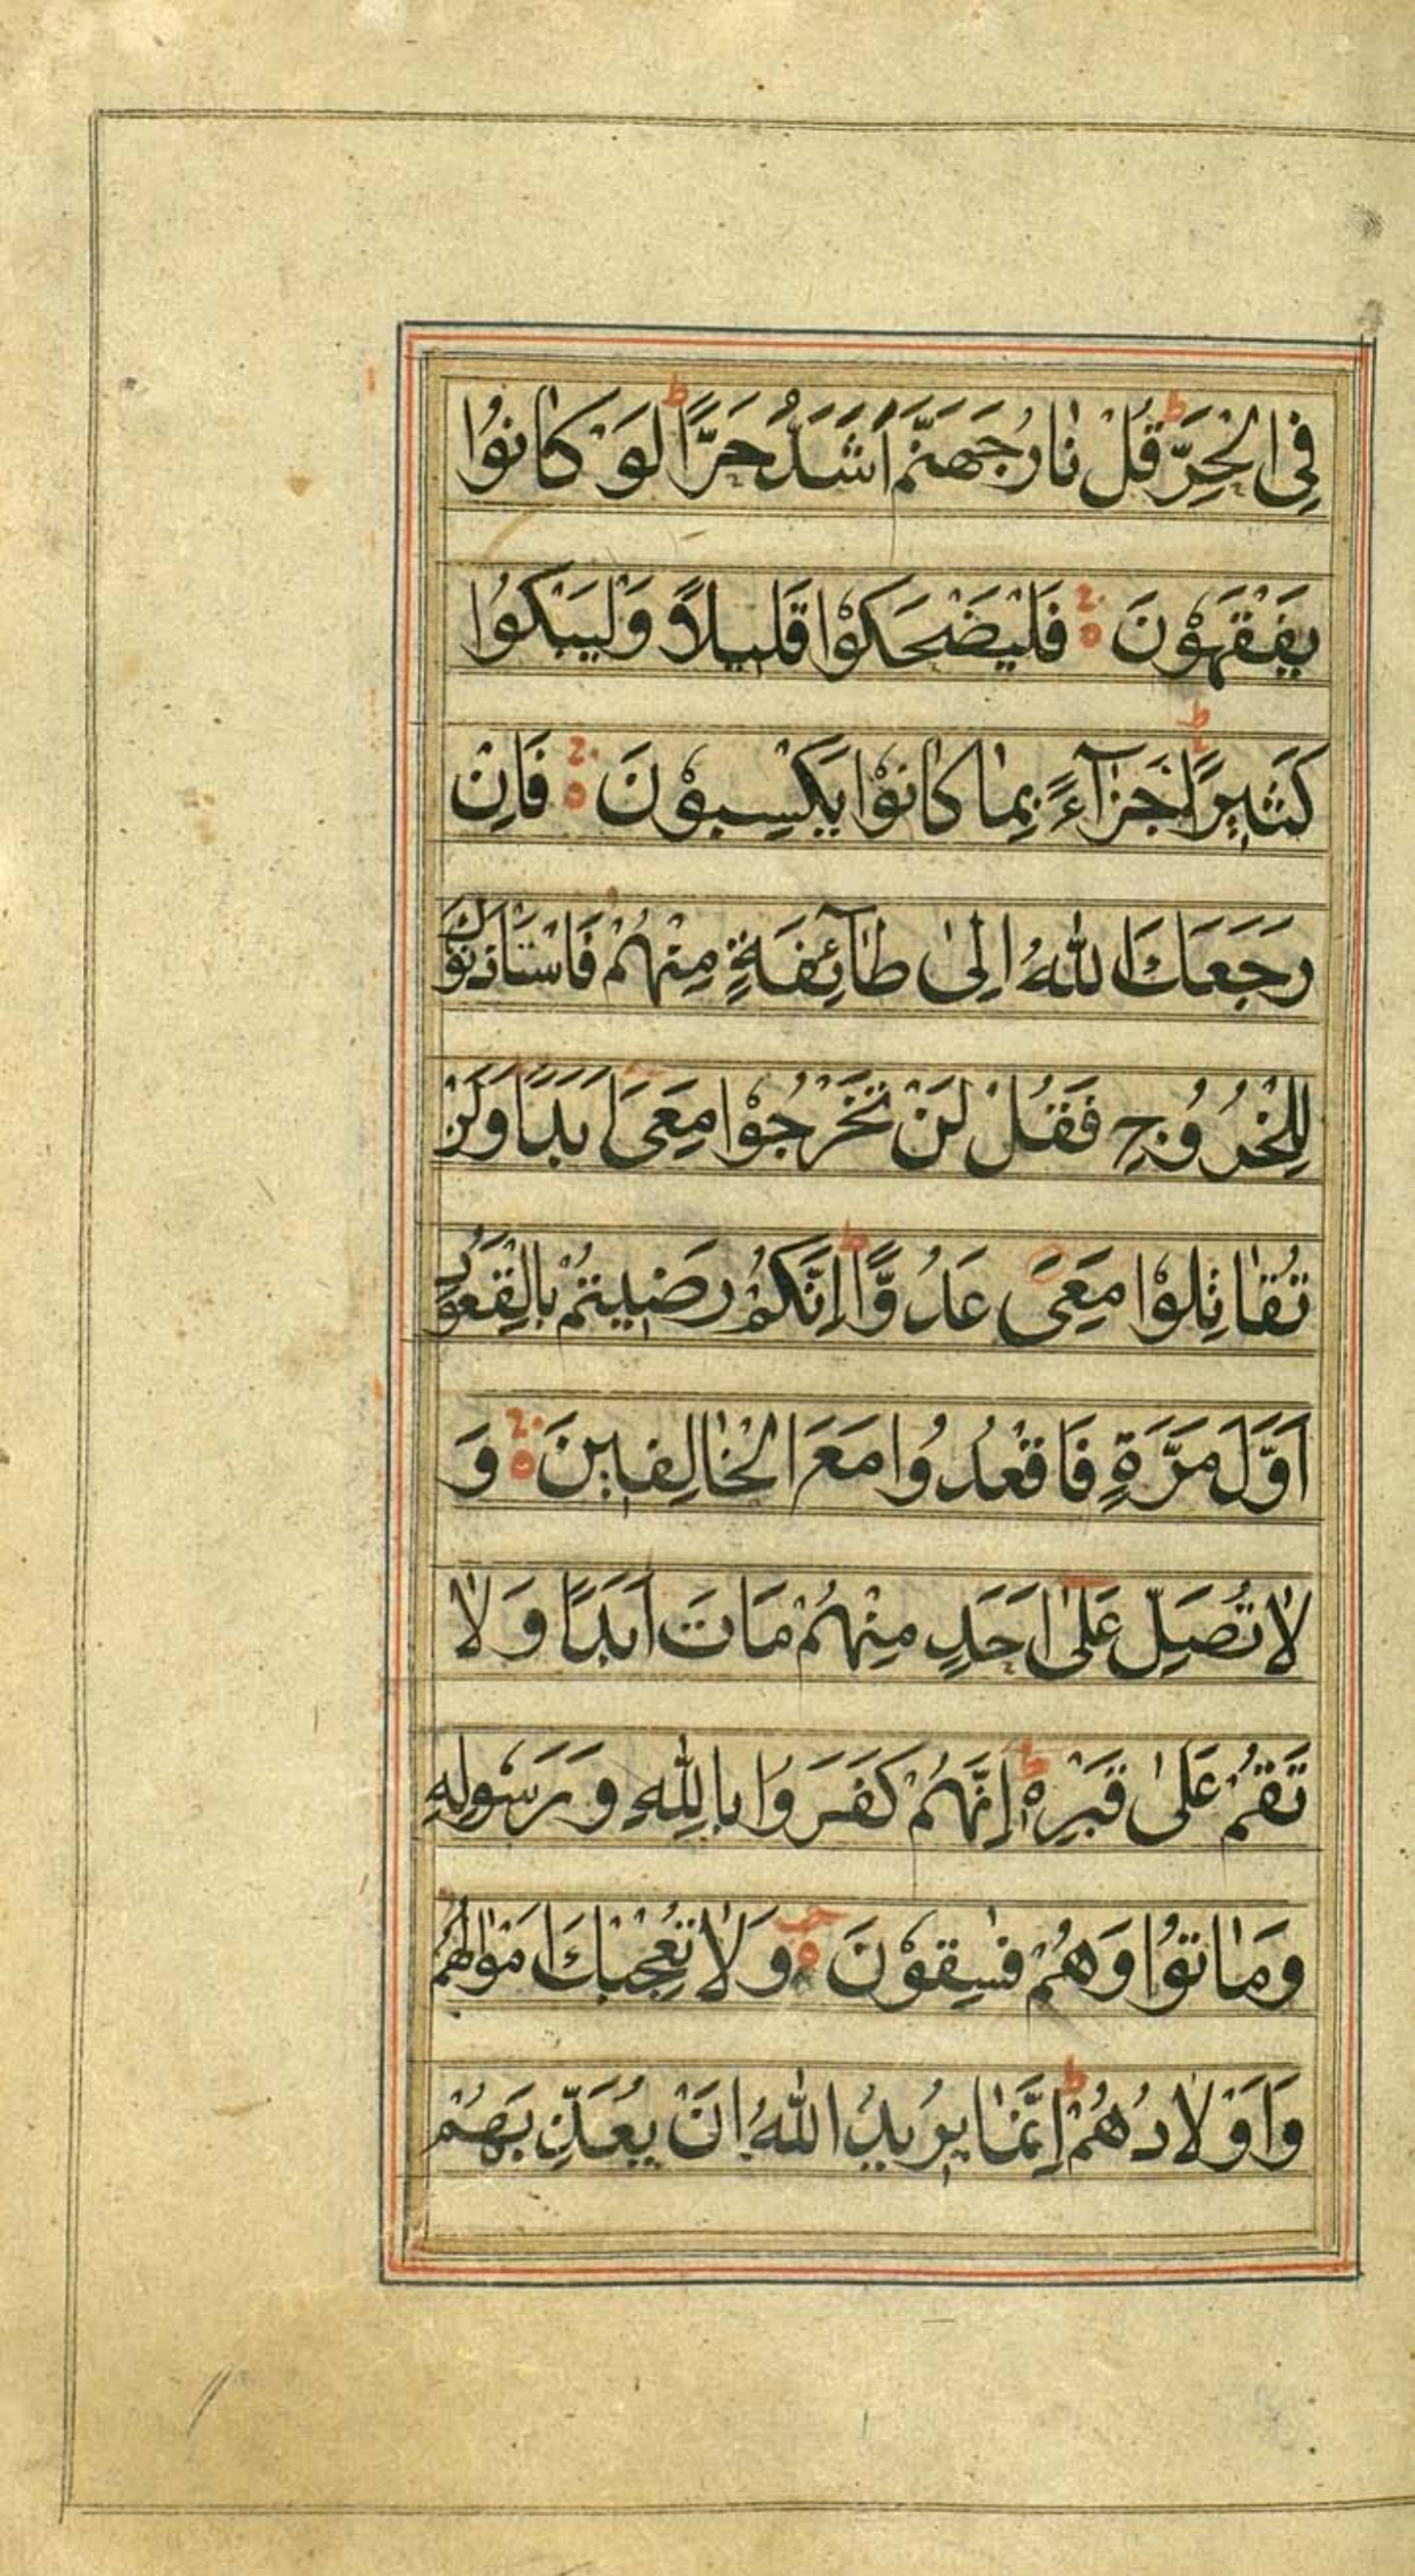 فِي الْحَرِّ ط قُلْ نَارُ جَهَنَّمَ اَشَدُّ حَرًّا ط لَوْ كَانُوا
يَفْقَهُوْنَ ۝ فَلْيَضْحَكُوْا قَلِيلاً وَلْيَبْكُوا
كَثِيرًا ط جَزَآءً بِمَا كَانُوْا يَكْسِبُوْنَ ۝ فَاِنْ
رَجَعَكَ اللهُ اِلىٰ طَآئِفَةٍ مِنْهُمْ فَاسْتَاْذَنُوْكَ
لِلْخُرُوُجِ فَقُلْ لَنْ تَخْرُجُوْا مَعِىَ اَبَدًا وَلَنْ
تُقَاتِلُوْا مَعِىَ عَدُوًّا ط اِنَّكُمْ رَضِيتُمْ بِالْقُعُوْدِ
اَوَّلَ مَرَّةٍ فَاقْعُدُوا مَعَ الْخَالِفِينَ ۝ وَ
لَا تُصَلِّ عَلىٰ اَحَدٍ مِنْهُمْ مَاتَ اَبَدًا وَ لَا
تَقُمْ عَلىٰ قَبْرِهٖ ط اِنَّهُمْ كَفَرُوا بِاللهِ وَ رَسُولِهِ
وَمَاتُوْا وَهُمْ فٰسِقُوْنَ ۝ وَ لَا تُعْجِبْكَ اَمْوَالُهُمْ
وَاَوْلَادُهُمْ ط اِنَّمَا يُرِيدُ اللهُ اَنْ يُعَذِّبَهُمْ